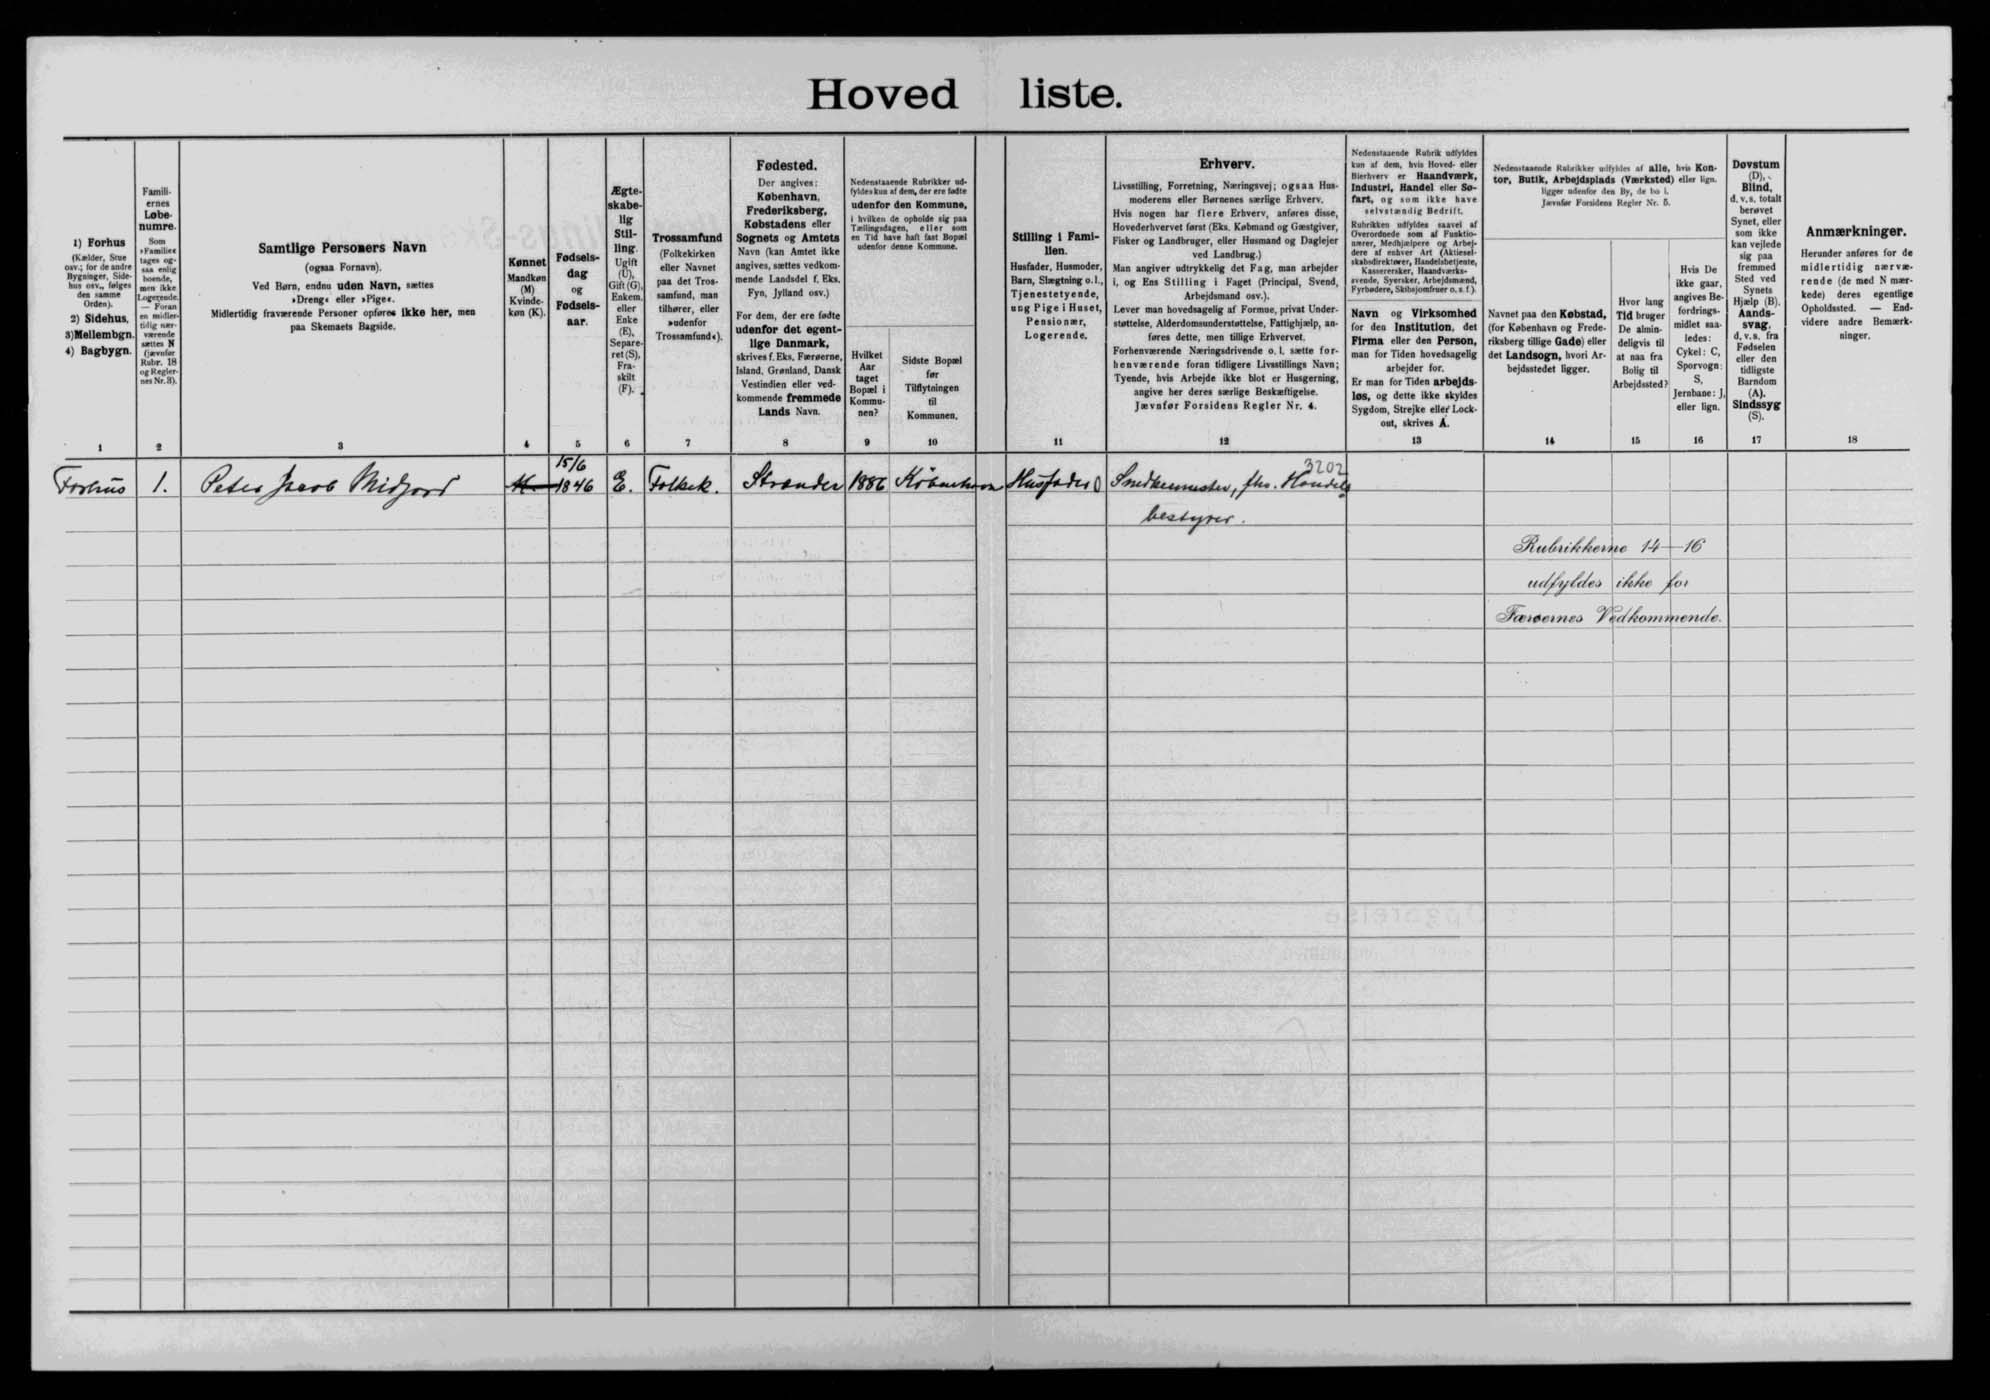 Hoved liste.
1) Forhus
(Kælder, Stue
osv.; for de andre
Bygninger, Side-
hus osv., følges
den samme
Orden).
2) Sidehus,
3) Mellembgn.
4) Bagbygn.
1
Famili-
ernes
Løbe-
numre.
Som
»Familie«
tages og-
saa enlig
boende,
men ikke
Logerende.
— Foran
en midler-
tidig nær-
værende
sættes N
(jævnfør
Rubr. 18
og Regler-
nes Nr. 3).
2
Samtlige Personers Navn
(ogsaa Fornavn).
Ved Børn, endnu uden Navn, sættes
»Dreng« eller »Pige«.
Midlertidig fraværende Personer opføres ikke her, men
paa Skemaets Bagside.
3
Kønnet
Mandkøn
(M)
Kvinde-
køn (K).
4
Fødsels-
dag
og
Fødsels-
aar.
5
Ægte-
skabe-
lig
Stil-
ling.
Ugift
(U),
Gift (G),
Enkem.
eller
Enke
(E),
Separe-
ret (S),
Fra-
skilt
(F).
6
Trossamfund
(Folkekirken
eller Navnet
paa det Tros-
samfund, man
tilhører, eller
»udenfor
Trossamfund«).
7
Fødested.
Der angives:
København,
Frederiksberg,
Købstadens eller
Sognets og Amtets
Navn (kan Amtet ikke
angives, sættes vedkom-
mende Landsdel f. Eks.
Fyn, Jylland osv.)
For dem, der ere fødte
udenfor det egent-
lige Danmark,
skrives f. Eks. Færøerne,
Island, Grønland, Dansk
Vestindien eller ved-
kommende fremmede
Lands Navn.
8
Nedenstaaende Rubrikker ud-
fyldes kun af dem, der ere fødte
udenfor den Kommune,
i hvilken de opholde sig paa
Tællingsdagen, eller som
en Tid have haft fast Bopæl
udenfor denne Kommune.
Hvilket
Aar
taget
Bopæl i
Kommu-
nen?
9
Sidste Bopæl
før
Tilflytningen
til
Kommunen.
10
Stilling i Fami-
lien.
Husfader, Husmoder,
Barn, Slægtning o.l.,
Tjenestetyende,
ung Pige i Huset,
Pensionær,
Logerende.
11
Erhverv.
Livsstilling, Forretning, Næringsvej; ogsaa Hus-
moderens eller Børnenes særlige Erhverv.
Hvis nogen har flere Erhverv, anføres disse,
Hovederhvervet først (Eks. Købmand og Gæstgiver,
Fisker og Landbruger, eller Husmand og Daglejer
ved Landbrug.)
Man angiver udtrykkelig det Fag, man arbejder
i, og Ens Stilling i Faget (Principal, Svend,
Arbejdsmand osv.).
Lever man hovedsagelig af Formue, privat Under-
støttelse, Alderdomsunderstøttelse, Fattighjælp, an-
føres dette, men tillige Erhvervet.
Forhenværende Næringsdrivende o. l. sætte for-
henværende foran tidligere Livsstillings Navn;
Tyende, hvis Arbejde ikke blot er Husgerning,
angive her deres særlige Beskæftigelse.
Jævnfør Forsidens Regler Nr. 4.
12
Nedenstaaende Rubrik udfyldes
kun af dem, hvis Hoved- eller
Bierhverv er Haandværk,
Industri, Handel eller Sø-
fart, og som ikke have
selvstændig Bedrift.
Rubrikken udfyldes saavel af
Overordnede som af Funktio-
nærer, Medhjælpere og Arbej-
dere af enhver Art (Aktiesel-
skabsdirektører, Handelsbetjente,
Kassererske­r, Haandværks-
svende, Syersker, Arbejdsmænd,
Fyrbødere, Skibsjomfruer o. s. f.).
Navn og Virksomhed
for den Institution, det
Firma eller den Person,
man for Tiden hovedsagelig
arbejder for.
Er man for Tiden arbejds-
løs, og dette ikke skyldes
Sygdom, Strejke eller Lock-
out, skrives A.
13
Nedenstaaende Rubrikker udfyldes af alle, hvis Kon-
tor, Butik, Arbejdsplads (Værksted) eller lign.
ligger udenfor den By, de bo i.
Jævnfør Forsidens Regler Nr. 5.
Navnet paa den Købstad,
(for København og Frede-
riksberg tillige Gade) eller
det Landsogn, hvori Ar-
bejdsstedet ligger.
14
Hvor lang
Tid bruger
De almin-
deligvis til
at naa fra
Bolig til
Arbejdssted?
15
Hvis De
ikke gaar,
angives Be-
fordrings-
midlet saa-
ledes:
Cykel: C,
Sporvogn:
S,
Jernbane: J,
eller lign.
16
Døvstum
(D),
Blind,
d. v. s. totalt
berøvet
Synet, eller
som ikke
kan vejlede
sig paa
fremmed
Sted ved
Synets
Hjælp (B).
Aands-
svag,
d. v. s. fra
Fødselen
eller den
tidligste
Barndom
(A).
Sindssyg
(S).
17
Anmærkninger.
Herunder anføres for de
midlertidig nærvæ-
rende (de med N mær-
kede) deres egentlige
Opholdssted. — End-
videre andre Bemærk-
ninger.
18
15/6 3202
Forhus 1. Peter Jacob Midjord M 1846 E. Folkek. Strander 1886 København Husfader Snedkermester, fhv. Handels
bestyrer.
Rubrikkerne 14—16
udfyldes ikke for
Færøernes Vedkommende.